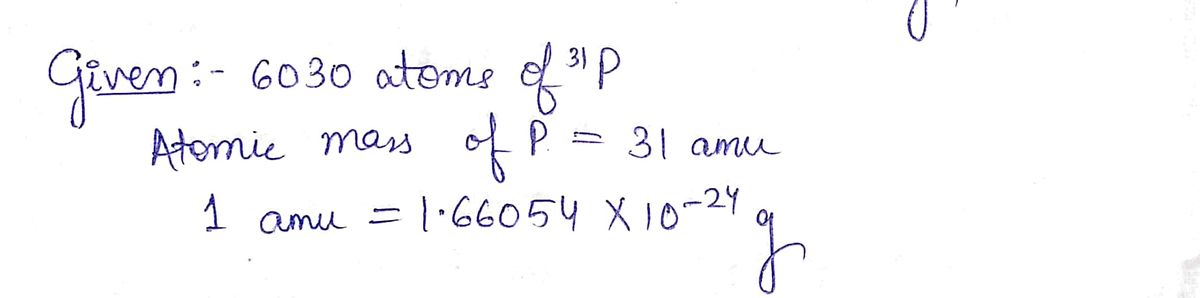 Given :- 6030 atoms of ³¹P
Atomic mass of P. = 31 amu
1 amu = 1.66054 X 10⁻²⁴ g